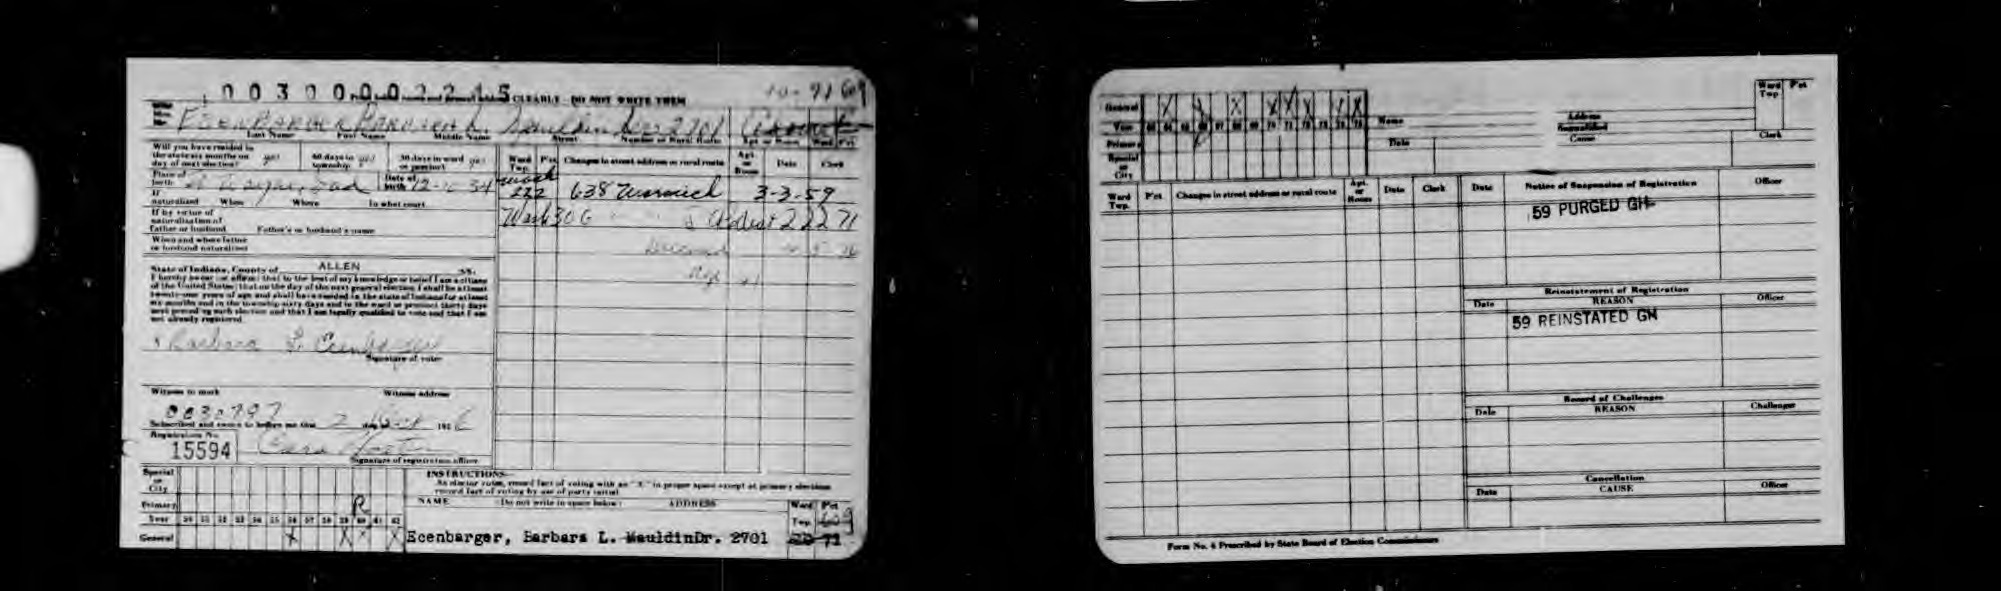 00300002215 CLEARLY - DO NOT WRITE THEM
10-71 609
ECENBARGER BARBARA L. Mauldin Dr. 2701
Last Name First Name Middle Name Street Number or Rural Route Apt. or Room Ward Pct.
Will you have resided in
the state six months on
day of next election? yes 60 days in township yes 30 days in ward or precinct yes
Place of birth Ft Wayne, Ind Date of birth 12- 34
If naturalized When Where In what court
If by virtue of
naturalization of
father or husband Father's or husband's name
When and where father
or husband naturalized
State of Indiana, County of ALLEN SS:
I hereby swear (or affirm) that to the best of my knowledge or belief I am a citizen
of the United States; that on the day of the next general election I shall be at least
twenty-one years of age and shall have resided in the state of Indiana for at least
six months and in the township sixty days and in the ward or precinct thirty days
next preceding such election and that I am legally qualified to vote and that I am
not already registered.
Barbara L. Ecenbarger
Signature of voter
Witness to mark Witness address
0030797
Subscribed and sworn to before me this 2 day 1956
Registration No.
15594
Signature of registration officer
Ward Twp. Pct. Changes in street address or rural route Apt. or Room Date Clerk
Wash
222 638 Warwick 3-3-59
Wash 306 2 22 71
Special or City
Primary R
Year 50 51 52 53 54 55 56 57 58 59 60 61 62
General X X X X
INSTRUCTIONS
As elector votes, record fact of voting with an "X" in proper space except at primary elections
record fact of voting by use of party initial
NAME (Do not write in space below) ADDRESS Ward Twp. Pct.
609
Ecenbarger, Barbara L. MauldinDr. 2701 71
General X X X X X X X
Year 63 64 65 66 67 68 69 70 71 72 73 74 75
Primary
Special or City
Name Address
Date Cause Clerk
Ward Twp Pct
Ward Twp. Pct. Changes in street address or rural route Apt. or Room Date Clerk
Date Notice of Suspension of Registration Officer
59 PURGED GH
Reinstatement of Registration
Date REASON Officer
59 REINSTATED GH
Record of Challenges
Date REASON Challenger
Cancellation
Date CAUSE Officer
Form No. 4 Prescribed by State Board of Election Commissioners